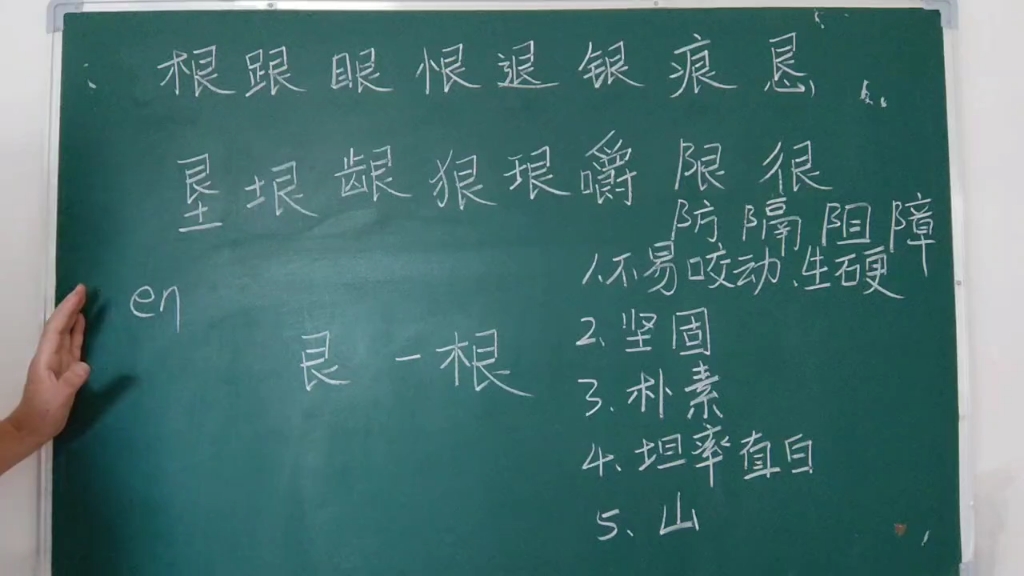 根 跟 眼 恨 退 银 痕 恳
垦 垠 龈 狠 珢 嚼 限 很
防 隔 阻 障
1.不易咬动.生石更
en
艮 - 根
2、坚固
3、朴素
4、坦率直白
5、山